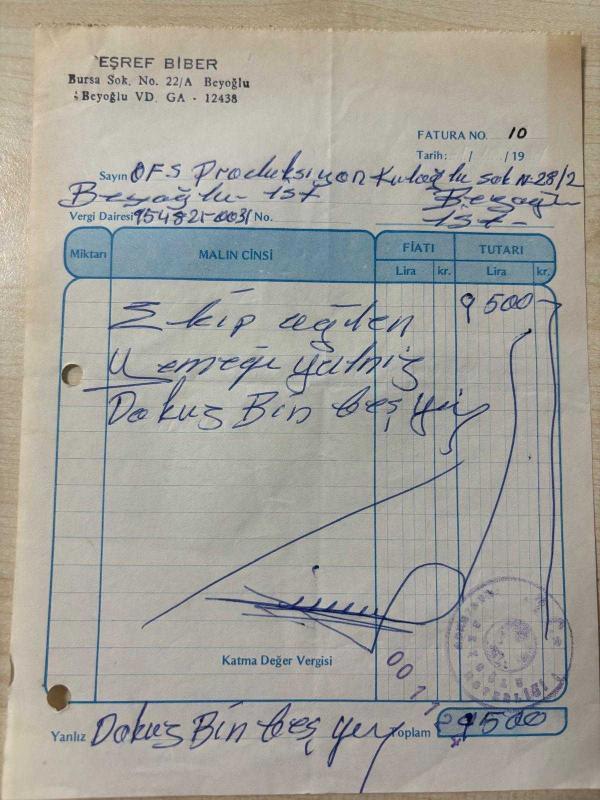 EŞREF BİBER
Bursa Sok. No. 22/A Beyoğlu
Beyoğlu VD. GA - 12438
FATURA NO. 10
Tarih: / / 19
Sayın OFS Prodüksiyon Kuloğlu sok N-28/2
Beyoğlu - IST Beyoğlu
Vergi Dairesi 954821-0031 No. IST-
Miktarı MALIN CİNSİ FİATI TUTARI
Lira kr. Lira kr.
Ekip öğlen 9500-
Yemeği yalnız
Dokuz Bin beş yüz
Katma Değer Vergisi
0011
Yanlız Dokuz Bin beş yüz Toplam 9500